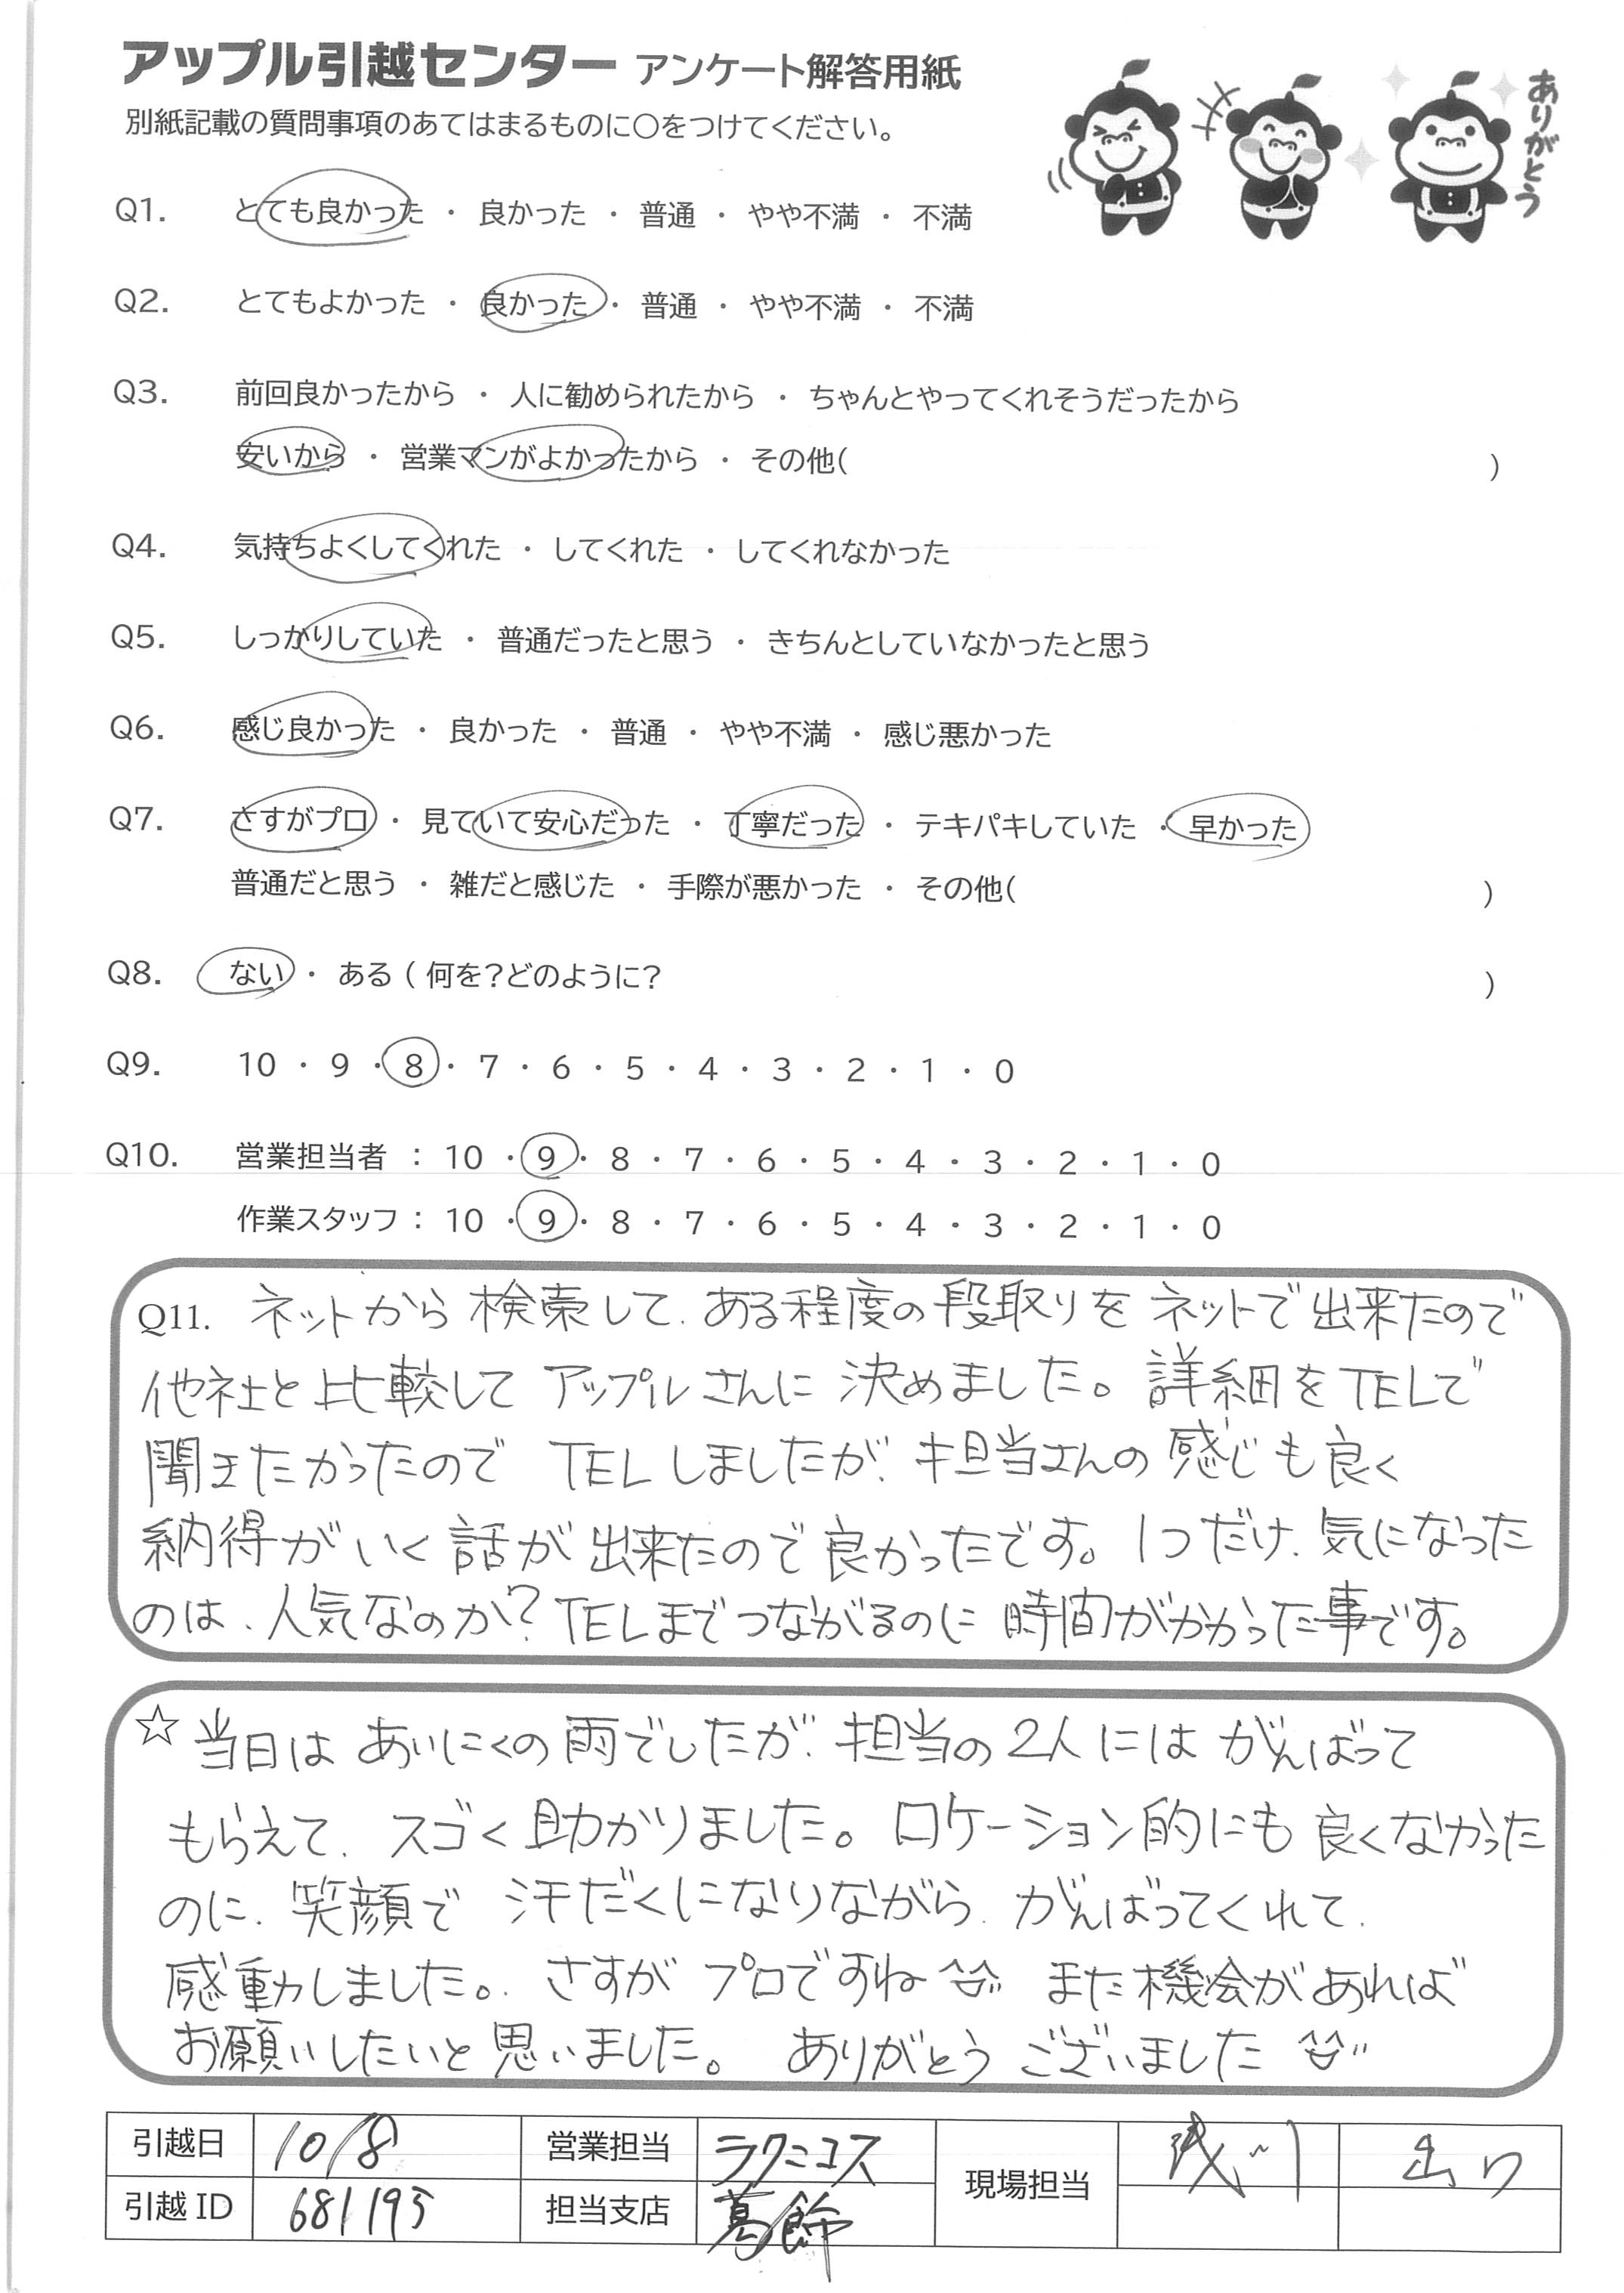 アップル引越センター アンケート解答用紙
ありがとう
別紙記載の質問事項のあてはまるものに○をつけてください。
Q1. とても良かった ・ 良かった ・ 普通 ・ やや不満 ・ 不満
Q2. とてもよかった ・ 良かった ・ 普通 ・ やや不満 ・ 不満
Q3. 前回良かったから ・ 人に勧められたから ・ ちゃんとやってくれそうだったから
安いから ・ 営業マンがよかったから ・ その他( )
Q4. 気持ちよくしてくれた ・ してくれた ・ してくれなかった
Q5. しっかりしていた ・ 普通だったと思う ・ きちんとしていなかったと思う
Q6. 感じ良かった ・ 良かった ・ 普通 ・ やや不満 ・ 感じ悪かった
Q7. さすがプロ ・ 見ていて安心だった ・ 丁寧だった ・ テキパキしていた ・ 早かった
普通だと思う ・ 雑だと感じた ・ 手際が悪かった ・ その他( )
Q8. ない ・ ある ( 何を?どのように? )
Q9. 10 ・ 9 ・ 8 ・ 7 ・ 6 ・ 5 ・ 4 ・ 3 ・ 2 ・ 1 ・ 0
Q10. 営業担当者 : 10 ・ 9 ・ 8 ・ 7 ・ 6 ・ 5 ・ 4 ・ 3 ・ 2 ・ 1 ・ 0
作業スタッフ : 10 ・ 9 ・ 8 ・ 7 ・ 6 ・ 5 ・ 4 ・ 3 ・ 2 ・ 1 ・ 0
Q11. ネットから検索して、ある程度の段取りをネットで出来たので
他社と比較して アップルさんに決めました。詳細をTELで
聞きたかったので TELしましたが、担当さんの感じも良く
納得がいく話が出来たので良かったです。1つだけ、気になった
のは、人気なのか?TELまでつながるのに時間がかかった事です。
☆ 当日は あいにくの雨でしたが、担当の2人には がんばって
もらえて、スゴく助かりました。ロケーション的にも良くなかった
のに、笑顔で 汗だくになりながら、がんばってくれて、
感動しました。さすが プロですね ^^ また機会があれば
お願いしたいと思いました。 ありがとうございました ^^
引越日 10/8 営業担当 ラクニコス 現場担当
引越 ID 681195 担当支店 葛飾